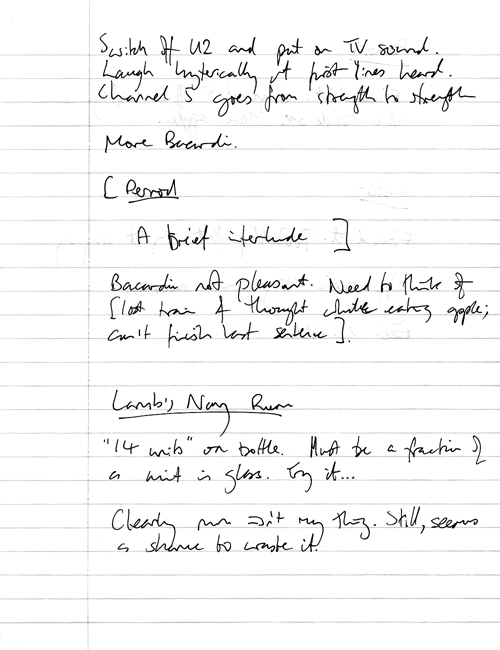 Switch off U2 and put on TV sound.
Laugh hysterically at first lines heard.
Channel 5 goes from strength to strength
More Bacardi.
[ Pernod
A brief interlude ]
Bacardi not pleasant. Need to think of
[lost train of thought whilst eating apple;
can't finish last sentence].
Lamb's Navy Rum
"14 units" on bottle. Must be a fraction of
a unit in glass. Try it...
Clearly rum isn't my thing. Still, seems
a shame to waste it.